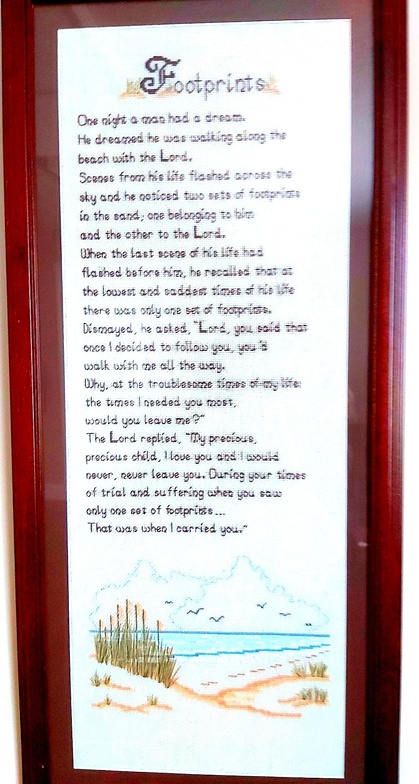 Footprints
One night a man had a dream.
He dreamed he was walking along the
beach with the Lord.
Scenes from his life flashed across the
sky and he noticed two sets of footprints
in the sand; one belonging to him
and the other to the Lord.
When the last scene of his life had
flashed before him, he recalled that at
the lowest and saddest times of his life
there was only one set of footprints.
Dismayed, he asked, "Lord, you said that
once I decided to follow you, you'd
walk with me all the way.
Why, at the troublesome times of my life:
the times I needed you most,
would you leave me?"
The Lord replied, "My precious,
precious child, I love you and I would
never, never leave you. During your times
of trial and suffering when you saw
only one set of footprints...
That was when I carried you."